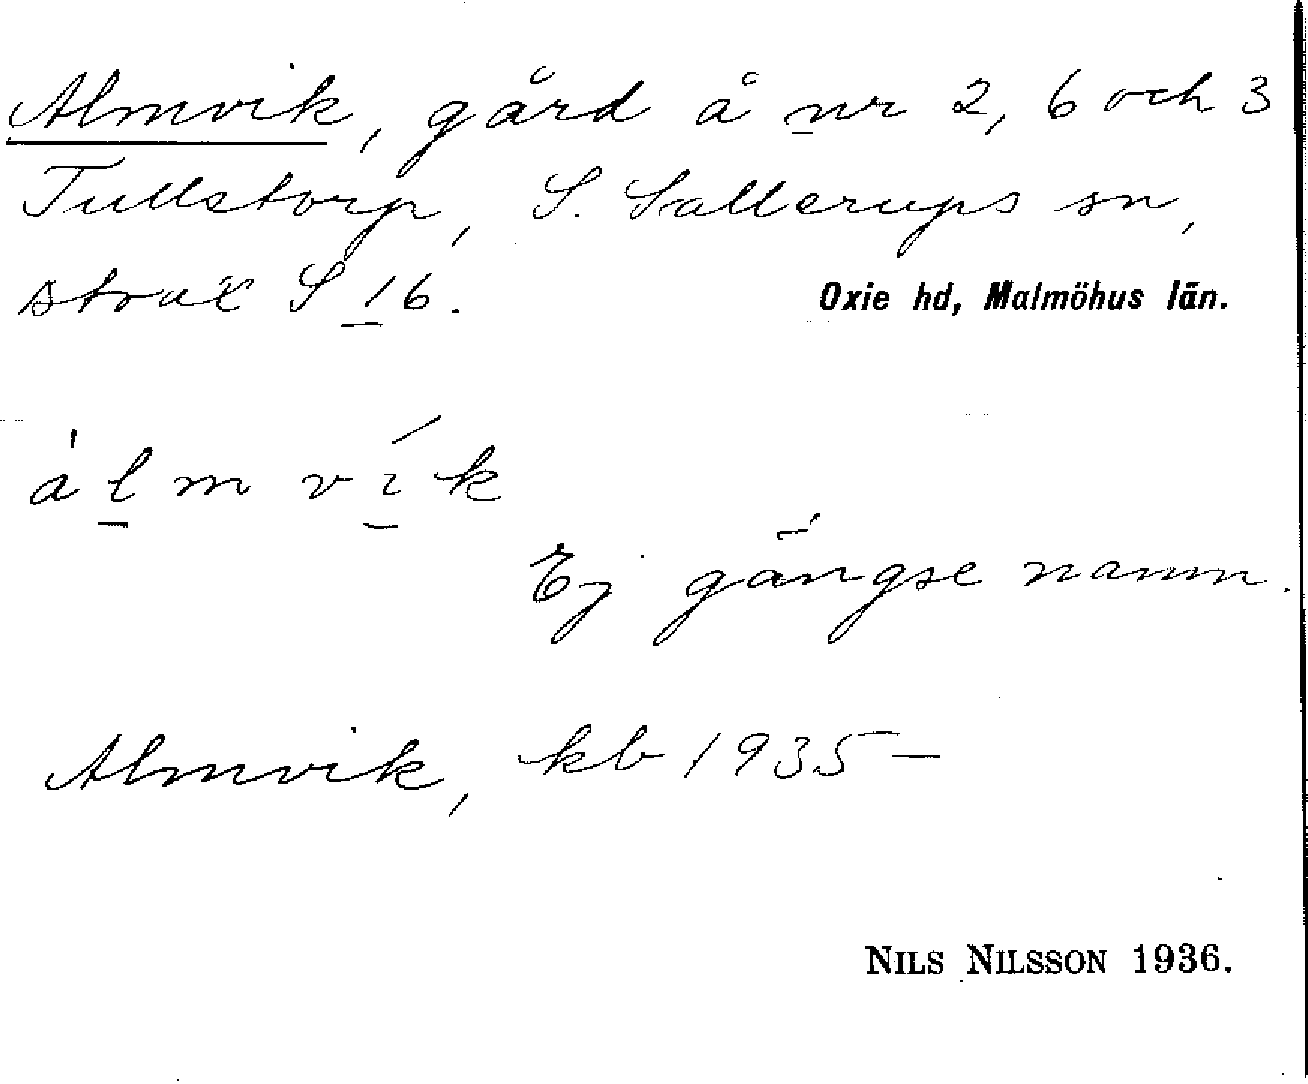 Almvik, gård å nr 2, 6 och 3
Tullstorp, S. Sallerups sn,
strax S 16.
Oxie hd, Malmöhus län.
àlm vík
Ej gängse namn.
Almvik, kb 1935 –
NILS NILSSON 1936.